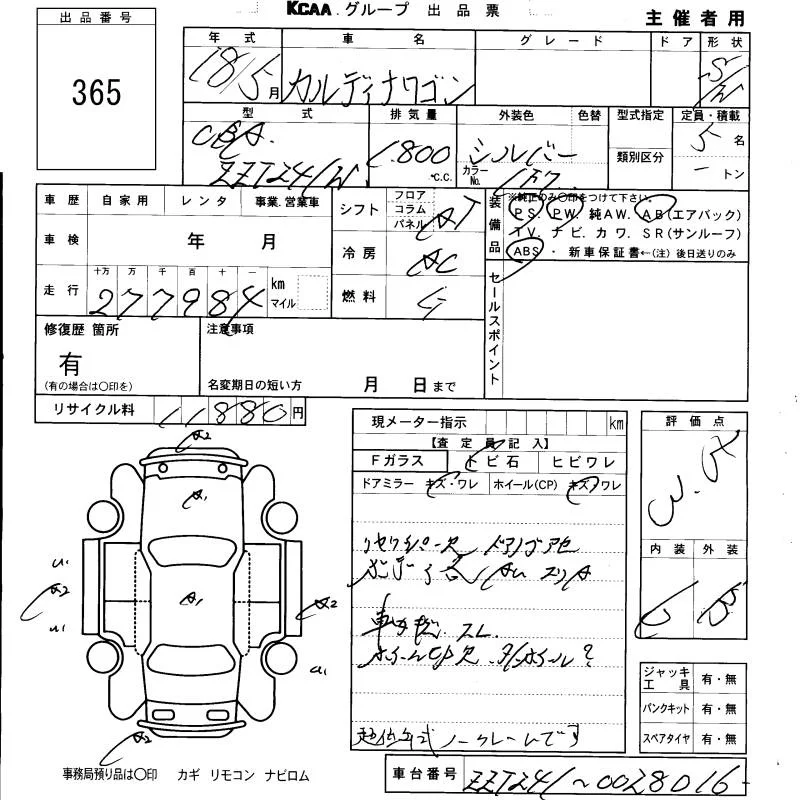 KCAA グループ 出品票
主催者用
出品番号
365
年式 車名 グレード ドア 形状
18/5月 カルディナワゴン S/W
型式 排気量 外装色 色替 型式指定 定員・積載
CBA 5名
ZZT241W 1,800 c.c. シルバー カラーNo. 1F7 類別区分 一トン
車歴 自家用 レンタ 事業.営業車
車検 年 月
走行 十万 万 千 百 十 一
277984 km マイル
シフト フロア コラム パネル AT
冷房 AC
燃料 G
装備品 ※純正のみ〇印をつけて下さい。
PS. PW. 純AW. AB(エアバック)
TV. ナビ. カワ. SR(サンルーフ)
ABS ・ 新車保証書←(注) 後日送りのみ
セールスポイント
修復歴 箇所
有
(有の場合は〇印を)
注意事項
名変期日の短い方 月 日まで
リサイクル料 11880円
現メーター指示 km
【査定員記入】
Fガラス トビ石 ヒビワレ
ドアミラー キズ・ワレ ホイール(CP) キズ・ワレ
評価点
内装 外装
C B
A2
A1
U1
A2
U1
A1
A2
A1
A2
ジャッキ工具 有・無
パンクキット 有・無
スペアタイヤ 有・無
低年式ノークレームです
事務局預り品は〇印 カギ リモコン ナビロム
車台番号 ZZT241~0028016-